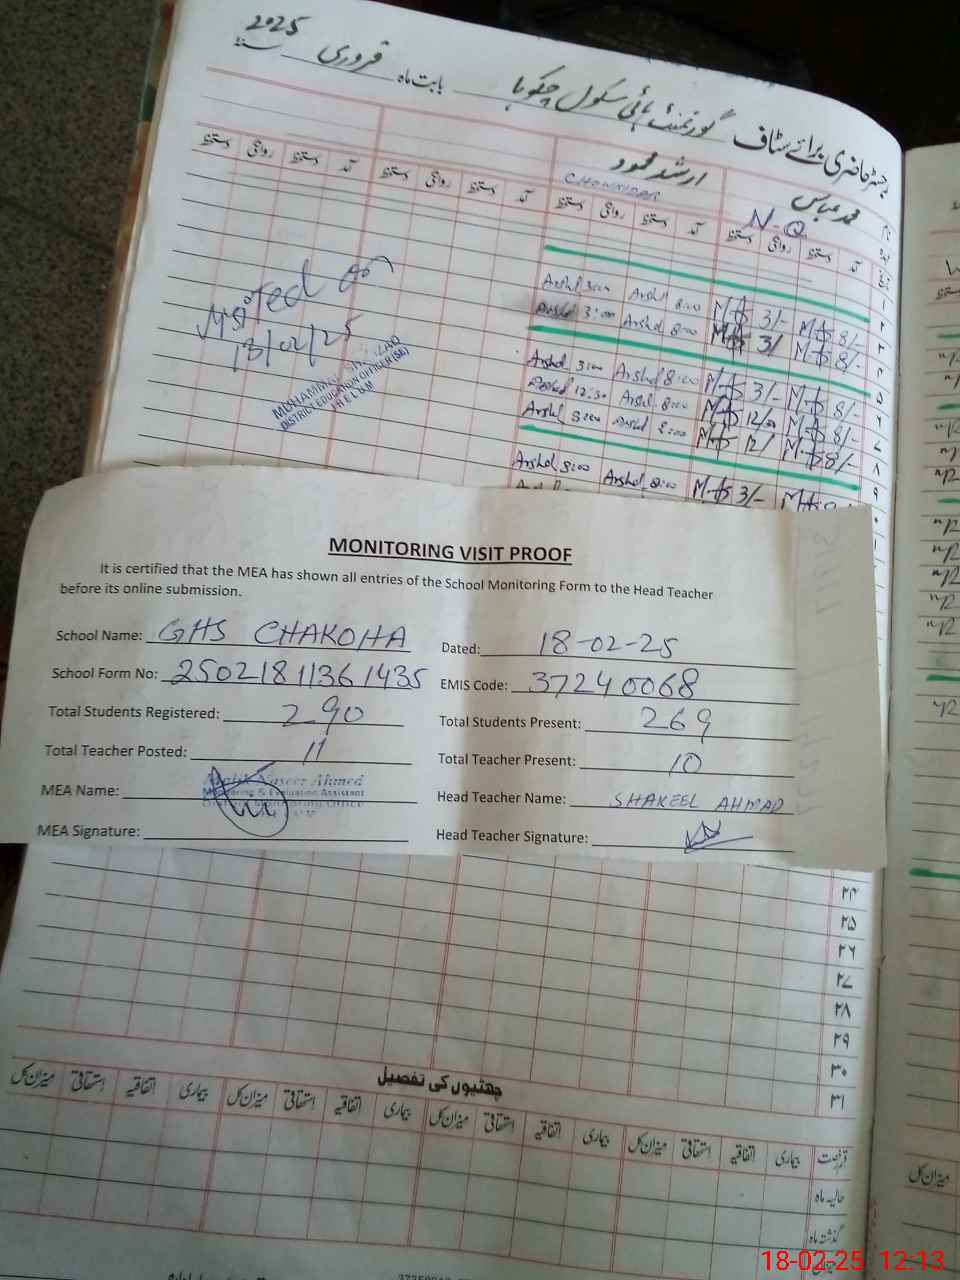 رجسٹر حاضری برائے سٹاف گورنمنٹ ہائی سکول چکوہا بابت ماہ فروری سنہ 2025
محمد عباس ارشد محمود
N-Q CHOWKIDAR
آمد دستخط روانگی دستخط آمد دستخط روانگی دستخط آمد دستخط روانگی دستخط آمد دستخط روانگی دستخط
Arshd 3:00 Arshd 8:00 3/- 8/-
Arshd 3:00 Arshd 8:00 3/ 8/-
Arshd 3:00 Arshd 8:00 3/- 8/-
12:30 Arshd 8:00 12/00 8/-
Arshd 3:00 Arshd 8:00 12/ 8/-
Arshd 3:00 Arshd 8:00 3/-
Visited on
13/02/25
DISTRICT EDUCATION OFFICER (SE)
JHELUM
MONITORING VISIT PROOF
It is certified that the MEA has shown all entries of the School Monitoring Form to the Head Teacher
before its online submission.
School Name: GHS CHAKOHA Dated: 18-02-25
School Form No: 25021811361435 EMIS Code: 37240068
Total Students Registered: 290 Total Students Present: 269
Total Teacher Posted: 11 Total Teacher Present: 10
MEA Name: Malik Naseer Ahmed Head Teacher Name: SHAKEEL AHMAD
Monitoring & Evaluation Assistant
District Monitoring Office
MEA Signature: Head Teacher Signature:
۲۴
۲۵
۲۶
۲۷
۲۸
۲۹
۳۰
۳۱
چھٹیوں کی تفصیل
قسم رخصت بیماری اتفاقیہ استحقاقی میزان کل بیماری اتفاقیہ استحقاقی میزان کل بیماری اتفاقیہ استحقاقی میزان کل بیماری اتفاقیہ استحقاقی میزان کل
حالیہ ماہ
گذشتہ ماہ
میزان کل
18-02-25 12:13